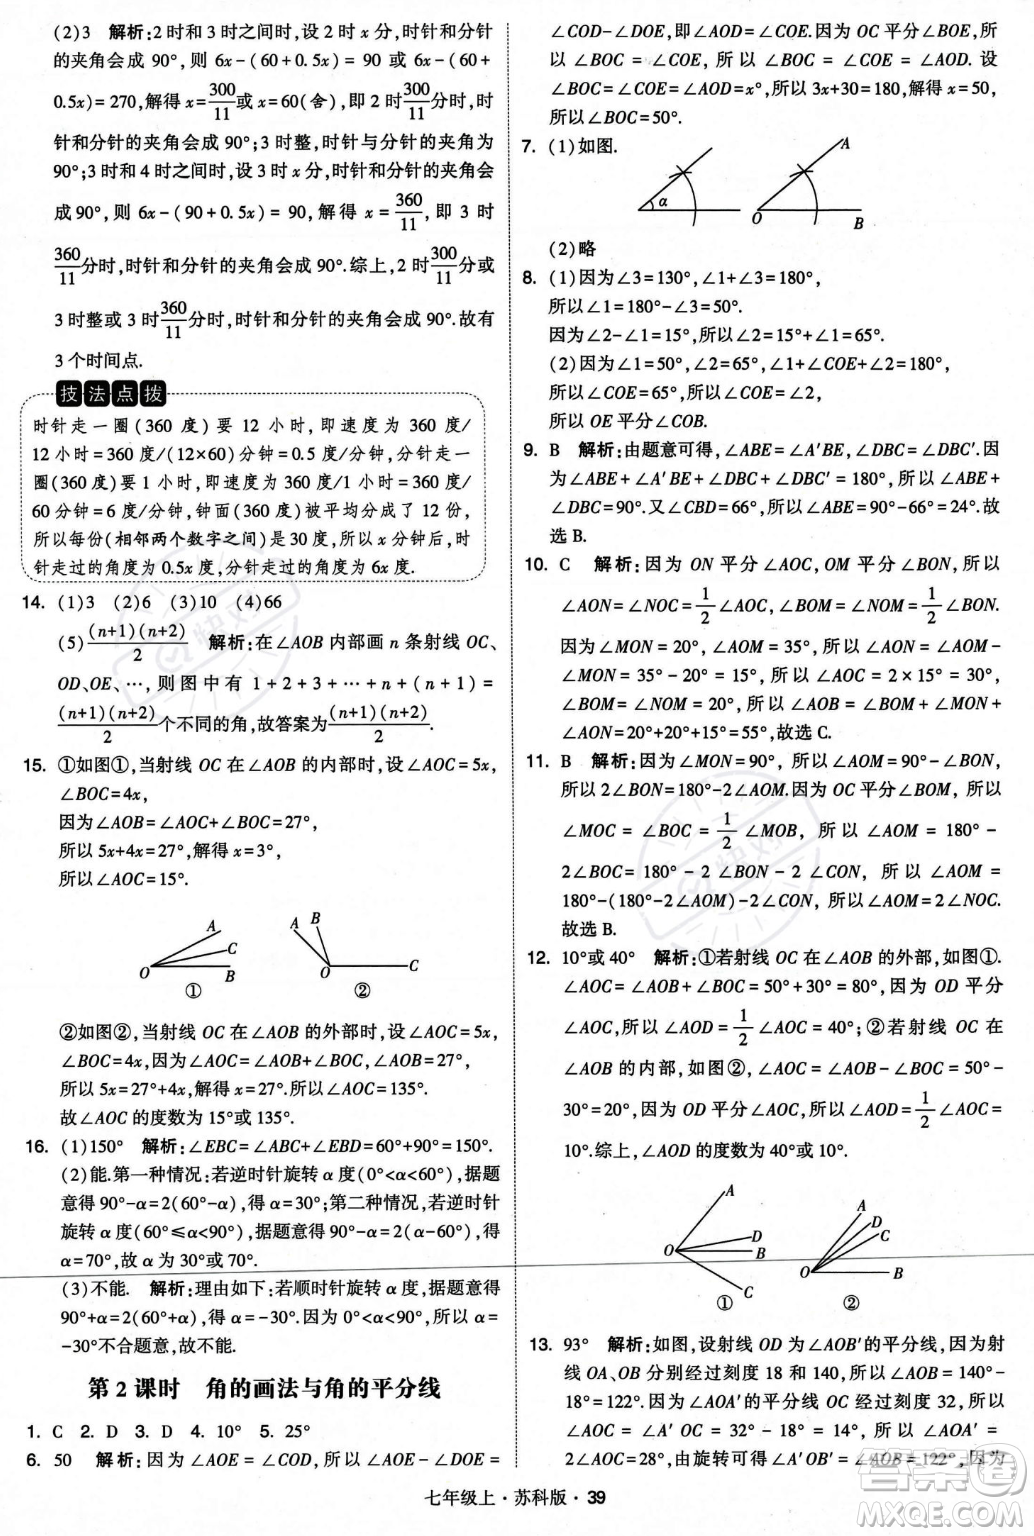 (2)3　解析:2时和3时之间时,设2时x分,时针和分针
的夹角会成90°,则 6x-(60+0.5x)=90 或 6x-(60+
0.5x)=270,解得x=300/11或x=60(舍),即2时300/11分时,时
针和分针的夹角会成90°;3时整,时针与分针的夹角为
90°;3时和4时之间时,设3时x分,时针和分针的夹角会
成90°,则 6x-(90+0.5x)=90,解得 x=360/11,即 3 时
360/11分时,时针和分针的夹角会成90°.综上,2时300/11分或
3时整或3时360/11分时,时针和分针的夹角会成90°.故有
3个时间点.
技法点拨
时针走一圈(360 度)要 12 小时,即速度为 360 度/
12小时=360度/(12×60)分钟=0.5度/分钟,分针走一
圈(360度)要1小时,即速度为360度/1小时=360度/
60分钟=6度/分钟,钟面(360度)被平均分成了12份,
所以每份(相邻两个数字之间)是30度,所以x分钟后,时
针走过的角度为0.5x度,分针走过的角度为6x度.
14. (1)3　(2)6　(3)10　(4)66
(5)(n+1)(n+2)/2　解析:在∠AOB内部画n条射线OC、
OD、OE、…,则图中有1+2+3+…+n+(n+1)=
(n+1)(n+2)/2个不同的角,故答案为(n+1)(n+2)/2.
15. ①如图①,当射线OC在∠AOB的内部时,设∠AOC=5x,
∠BOC=4x,
因为∠AOB=∠AOC+∠BOC=27°,
所以5x+4x=27°,解得x=3°,
所以∠AOC=15°.
A C O B ①
A B O C ②
②如图②,当射线OC在∠AOB的外部时,设∠AOC=5x,
∠BOC=4x,因为∠AOC=∠AOB+∠BOC,
所以5x=27°+4x,解得x=27°.所以∠AOC=135°.
故∠AOC的度数为15°或135°.
16. (1)150°　解析:∠EBC=∠ABC+∠EBD=60°+90°=150°.
(2)能.第一种情况:若逆时针旋转α度(0°<α<60°),据题
意得90°-α=2(60°-α),得α=30°;第二种情况,若逆时针
旋转α度(60°≤α<90°),据题意得90°-α=2(α-60°),得
α=70°,故α=30°或70°.
(3)不能.　解析:理由如下:若顺时针旋转α度,据题意得
90°+α=2(60°+α),得α=-30°.因为0°<α<90°,α=
-30°不合题意,故不能.
第2课时　角的画法与角的平分线
1. C　2. D　3. D　4. 10°　5. 25°
6. 50　解析:因为∠AOE=∠COD,所以∠AOE-∠DOE=
∠COD-∠DOE,即∠AOD=∠COE.因为OC平分∠BOE,所
以∠BOC=∠COE,所以∠BOC=∠COE=∠AOD.设
∠BOC=∠COE=∠AOD=x°,所以3x+30=180,解得x=50,
所以∠BOC=50°.
7. (1)如图.
α O A B
(2)略
8. (1)因为∠3=130°,∠1+∠3=180°,
所以∠1=180°-∠3=50°.
因为∠2-∠1=15°,所以∠2=15°+∠1=65°.
(2)因为∠1=50°,∠2=65°,∠1+∠COE+∠2=180°,
所以∠COE=65°,所以∠COE=∠2,
所以OE平分∠COB.
9. B　解析:由题意可得,∠ABE=∠A′BE,∠DBC=∠DBC′.因
为∠ABE+∠A′BE+∠DBC+∠DBC′=180°,所以∠ABE+
∠DBC=90°.又∠CBD=66°,所以∠ABE=90°-66°=24°.故
选B.
10. C　解析:因为ON平分∠AOC,OM平分∠BON,所以
∠AON=∠NOC=1/2∠AOC,∠BOM=∠NOM=1/2∠BON.
因为∠MON=20°,∠AOM=35°,所以∠AON=∠AOM-
∠MON=35°-20°=15°,所以∠AOC=2×15°=30°,
∠BOM=∠NOM=20°,所以∠AOB=∠BOM+∠NOM+
∠AON=20°+20°+15°=55°,故选C.
11. B　解析:因为∠MON=90°,所以∠AOM=90°-∠BON,
所以2∠BON=180°-2∠AOM.因为OC平分∠BOM,所以
∠MOC=∠BOC=1/2∠MOB,所以∠AOM=180°-
2∠BOC=180°-2(∠BON+∠CON,所以∠AOM=
180°-(180°-2∠AOM)-2∠CON,所以∠AOM=2∠NOC.
故选B.
12. 10°或40°　解析:①若射线OC在∠AOB的外部,如图①.
∠AOC=∠AOB+∠BOC=50°+30°=80°,因为OD平分
∠AOC,所以∠AOD=1/2∠AOC=40°;②若射线OC在
∠AOB的内部,如图②,∠AOC=∠AOB-∠BOC=50°-
30°=20°,因为OD平分∠AOC,所以∠AOD=1/2∠AOC=
10°.综上,∠AOD的度数为40°或10°.
A D O B C ①
A D C O B ②
13. 93°　解析:如图,设射线OD为∠AOB′的平分线,因为射
线OA、OB分别经过刻度18和140,所以∠AOB=140°-
18°=122°.因为OC平分∠AOA′且OC经过刻度32,所以
∠AOC=∠A′OC=32°-18°=14°,所以∠AOA′=
2∠AOC=28°,由旋转可得∠A′OB′=∠AOB=122°,因为
七年级上·苏科版·39
答案圈
MXQE.COM